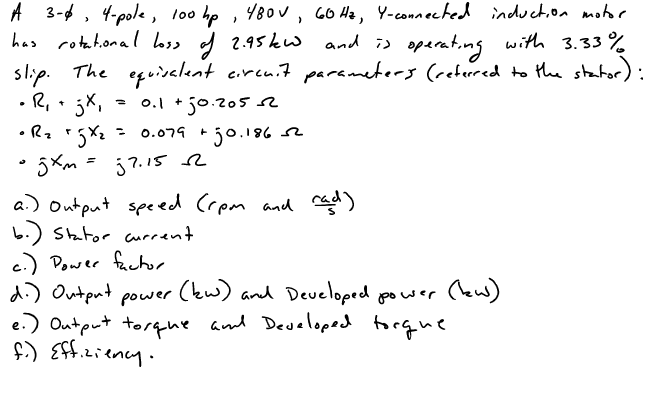 A 3-ϕ, 4-pole, 100 hp, 480V, 60 Hz, Y-connected induction motor
has rotational loss of 2.95kW and is operating with 3.33%
slip. The equivalent circuit parameters (referred to the stator):
• R₁ + jX₁ = 0.1 + j0.205 Ω
• R₂ + jX₂ = 0.079 + j0.186 Ω
• jXm = j7.15 Ω
a.) Output speed (rpm and rad/s)
b.) Stator current
c.) Power factor
d.) Output power (kW) and Developed power (kW)
e.) Output torque and Developed torque
f.) Efficiency.